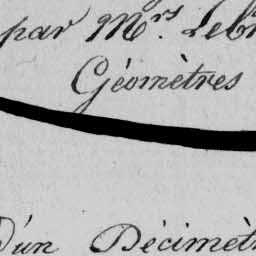 par Mrs. Leb
Géomètres
d'un Décimèt